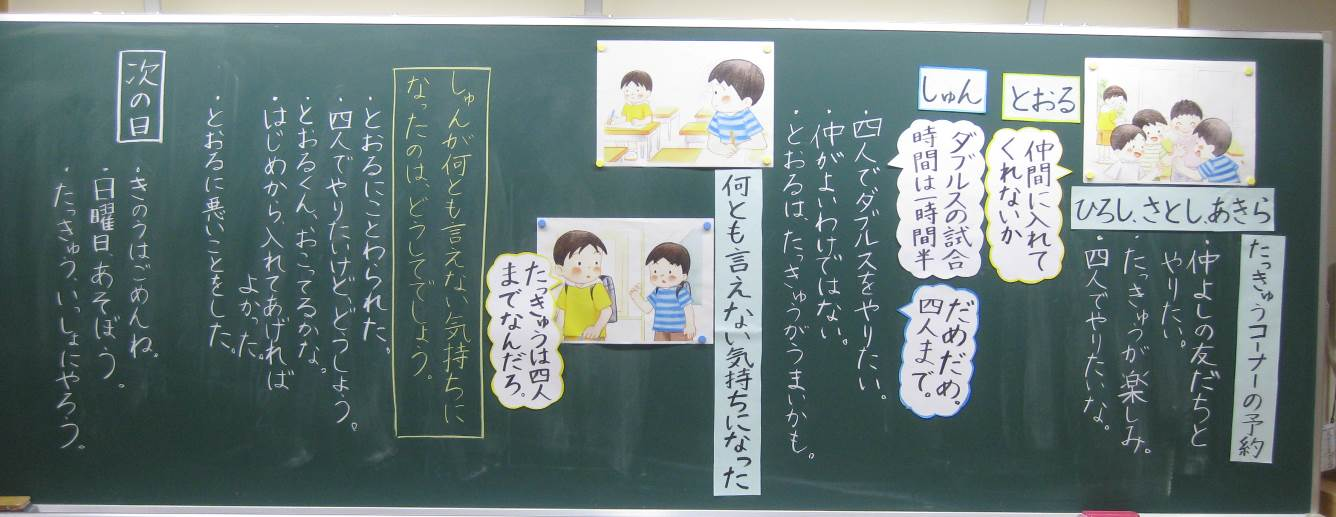 たっきゅうコーナーの予約
ひろし、さとし、あきら
・仲よしの友だちと
やりたい。
・たっきゅうが楽しみ。
・四人でやりたいな。
とおる
仲間に入れて
くれないか
しゅん
ダブルスの試合
時間は一時間半
だめだめ。
四人まで。
・四人でダブルスをやりたい。
・仲がよいわけではない。
・とおるは、たっきゅうがうまいかも。
何とも言えない気持ちになった
たっきゅうは四人
までなんだろ。
しゅんが何とも言えない気持ちに
なったのは、どうしてでしょう。
・とおるにことわられた。
・四人でやりたいけど、どうしよう。
・とおるくん、おこってるかな。
・はじめから、入れてあげれば
よかった。
・とおるに悪いことをした。
次の日
・きのうはごめんね。
・日曜日、あそぼう。
・たっきゅう、いっしょにやろう。